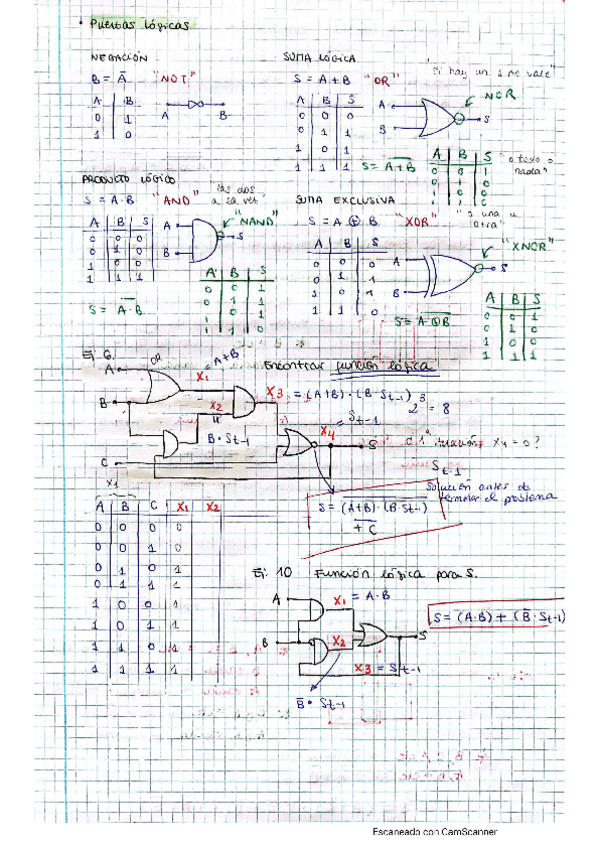 • Puertas lógicas
NEGACIÓN
B = A̅ "NOT"
A B
0 1
1 0
A B
SUMA LÓGICA
S = A + B "OR"
"si hay un 1 me vale"
NOR
A B S
0 0 0
0 1 1
1 0 1
1 1 1
A
B
S
S = \overline{A+B}
A B S
0 0 1
"o todo o nada"
PRODUCTO LÓGICO
S = A · B "AND"
"las dos a la vez"
"NAND"
A B S
0 0 0
1 1 1
A
B
S
S = \overline{A·B}
A B S
0 0 1
0 1 1
1 0 1
1 1 0
SUMA EXCLUSIVA
S = A ⊕ B "XOR"
"o una u otra"
"XNOR"
A B S
0 0 0
0 1 1
1 0 1
1 1 0
A
B
S
S = \overline{A⊕B}
A B S
0 0 1
0 1 0
1 0 0
1 1 1
Ej 6. Encontrar función lógica
OR
A
B
C
X1 = A+B
X2
B · St-1
X3 = (A+B) · (B · St-1)
2³ = 8
X4 = St-1
S
X4 = 0?
St-1
Solución antes de terminar el problema
S = \overline{(A+B) · (B · St-1) + C}
X1
A B C X1 X2
0 0 0 0
0 0 1 0
0 1 0 1
0 1 1 1
1 0 0 1
1 0 1 1
1 1 0 1
1 1 1 1
Ej. 10 Función lógica para S.
A
B
X1 = A · B
X2
X3 = St-1
S
B̅ · St-1
S = (A·B) + (B̅ · St-1)
Escaneado con CamScanner